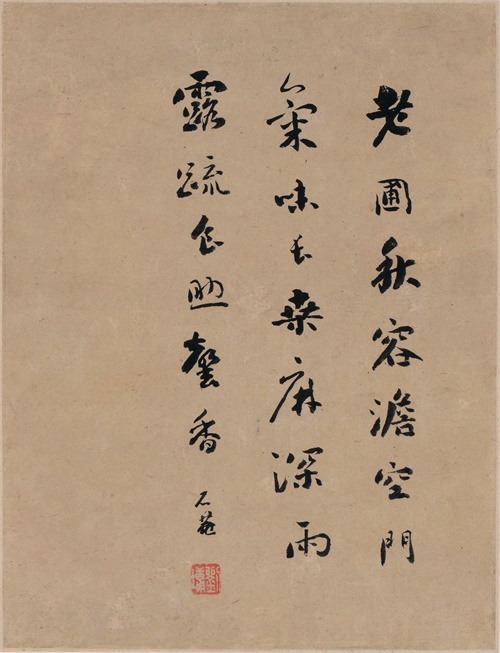 老圃秋容澹空門
氣味長桑麻深雨
露疏食助馨香
石菴